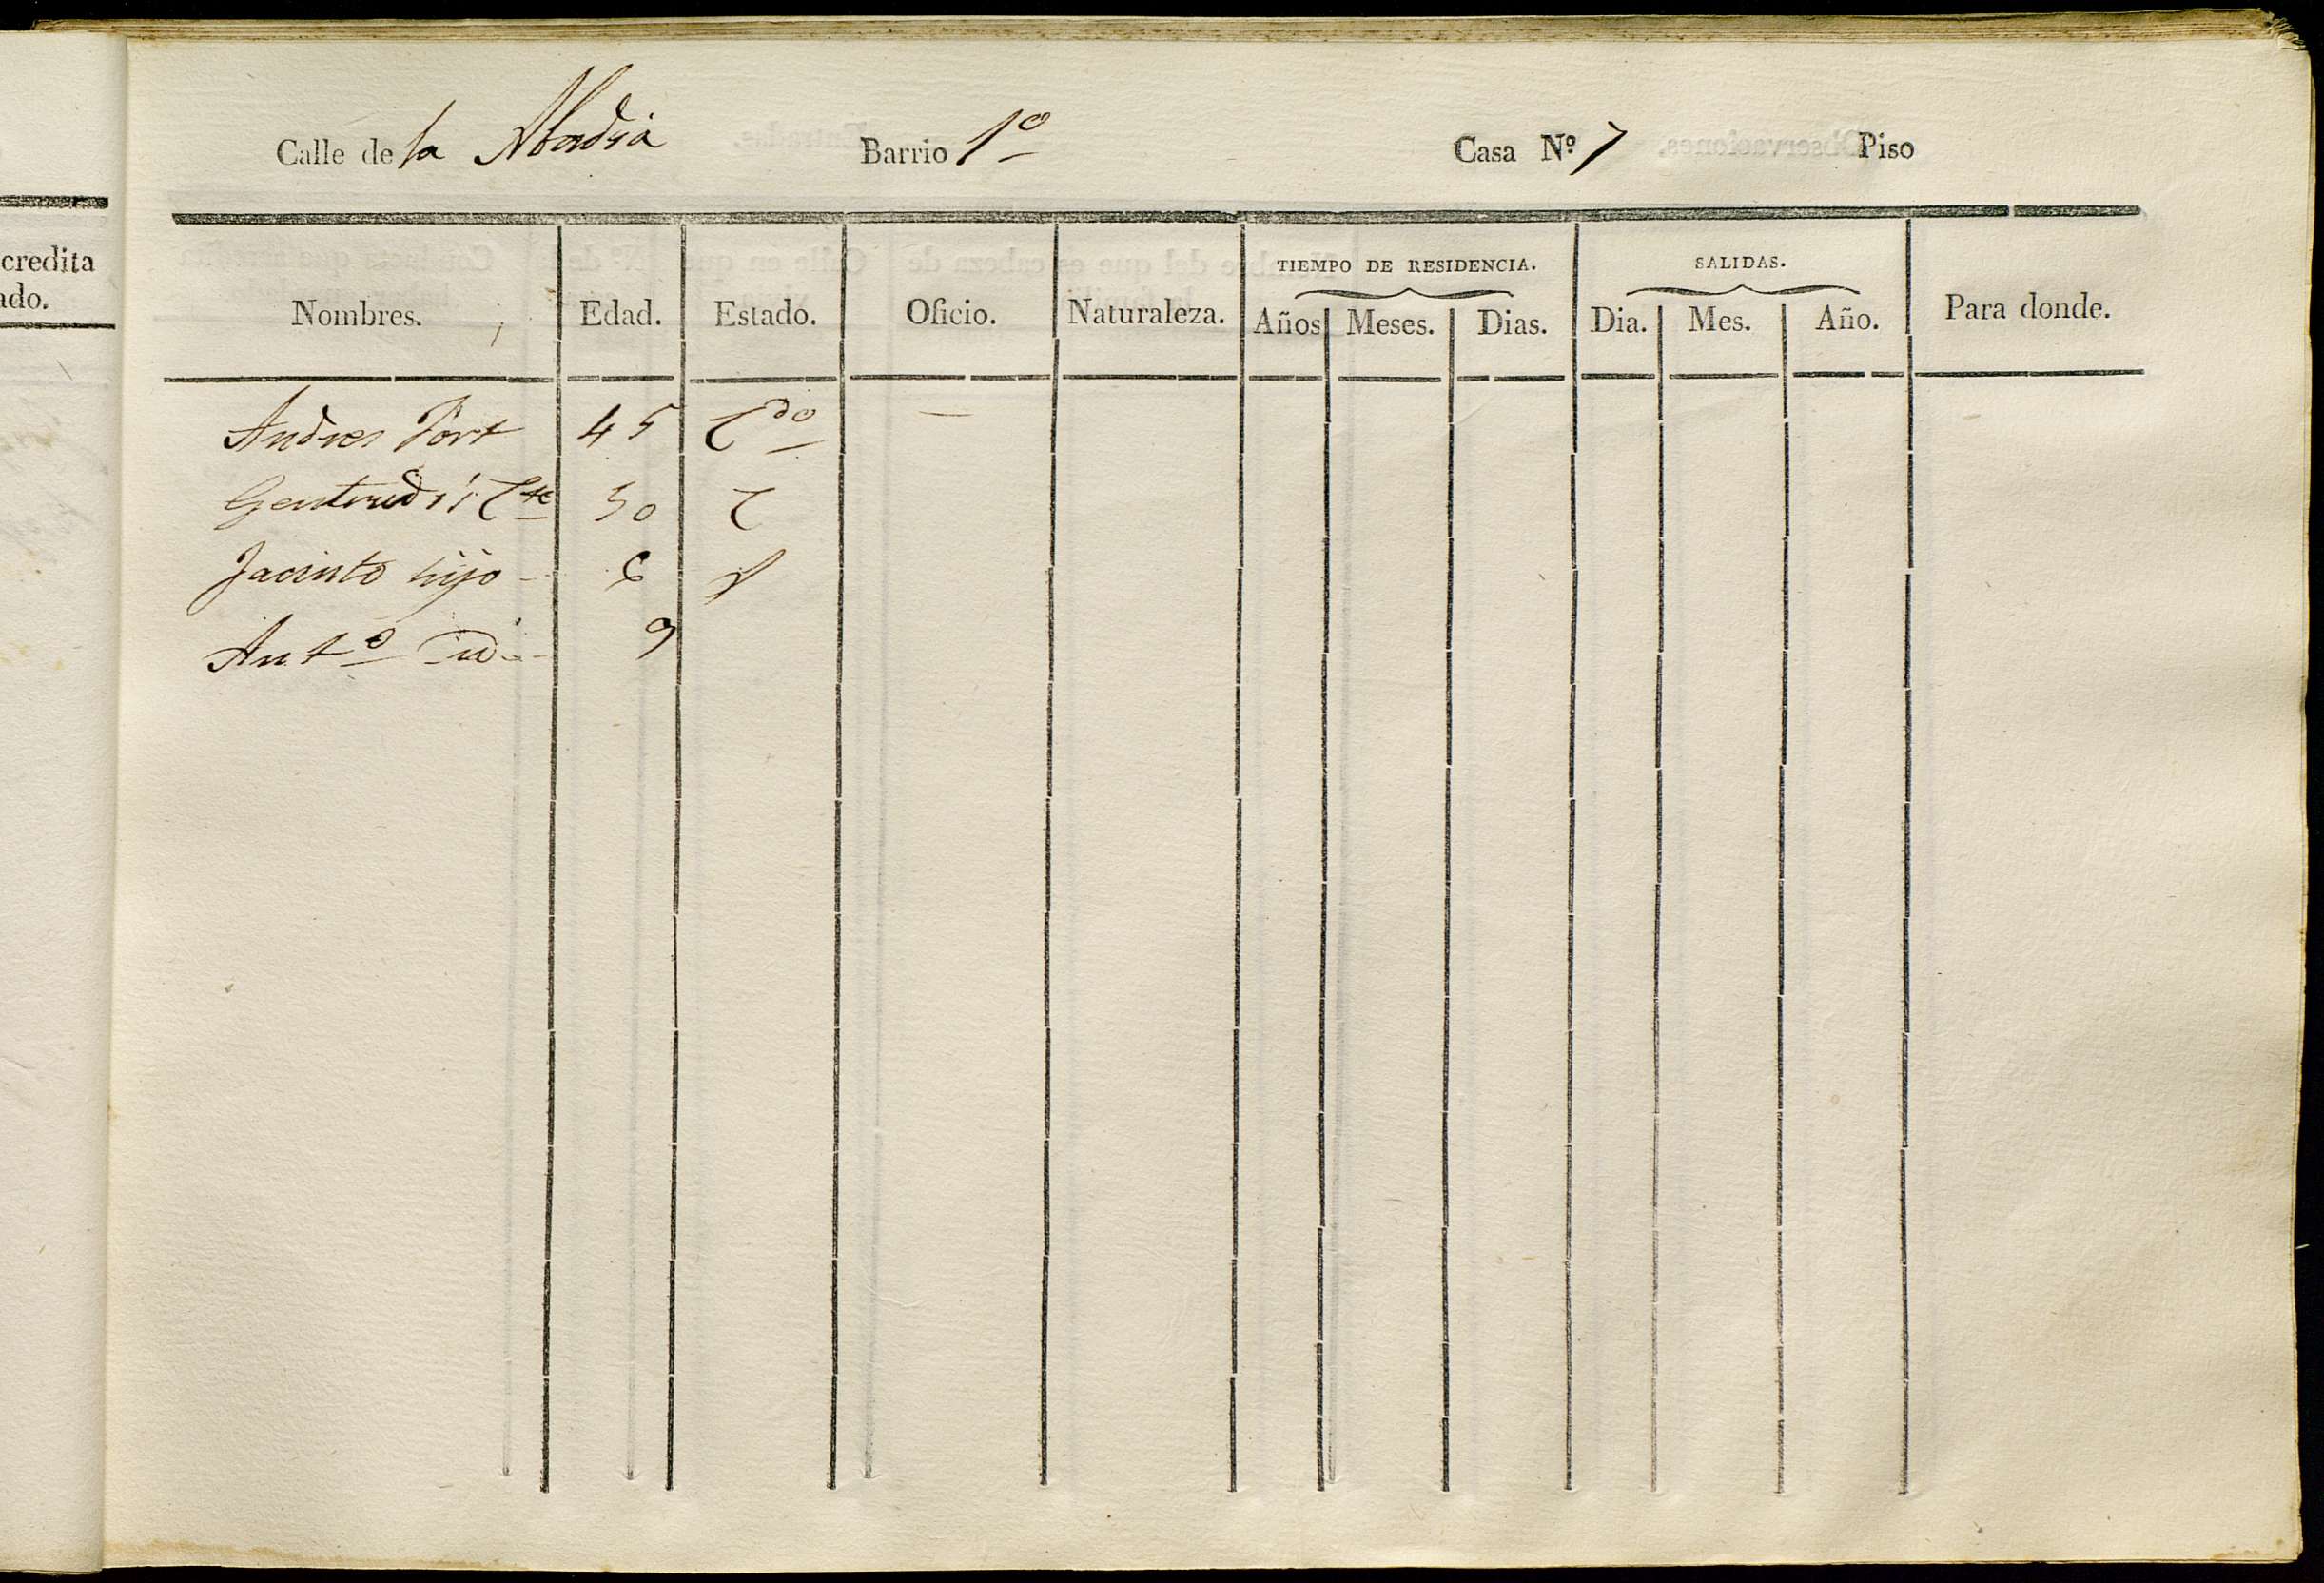 credita
ado.
Calle de la Abadia Barrio 1º Casa Nº 7 Piso
TIEMPO DE RESIDENCIA. SALIDAS.
Nombres. Edad. Estado. Oficio. Naturaleza. Años Meses. Dias. Dia. Mes. Año. Para donde.
Andres Fort 45 Cdo —
Gertrudis 50 C
Jacinto hijo 6 S
Antº id 9